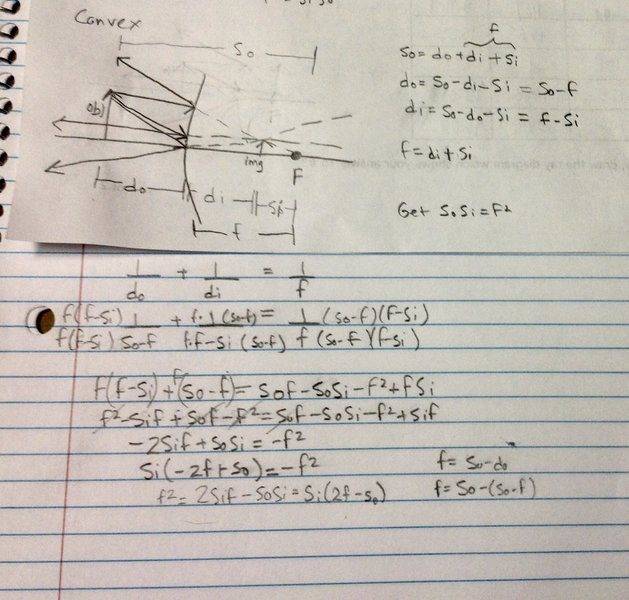 Convex
So
obj
img
F
do
di
Si
f
f
So = do + di + Si
do = So - di - Si = So - f
di = So - do - Si = f - Si
f = di + Si
Get SoSi = F²
1/do + 1/di = 1/f
f(f-Si) 1 / f(f-Si) So-f + f·1 (So-f) / f·f-Si (So-f) = 1 (So-f)(f-Si) / f (So-f)(f-Si)
f(f-Si) + f(So-f) = Sof - SoSi - f² + fSi
f² - Sif + Sof - f² = Sof - SoSi - f² + Sif
-2Sif + SoSi = -f²
Si(-2f + So) = -f²
f² = 2Sif - SoSi = Si(2f - So)
f = So - do
f = So - (So - f)